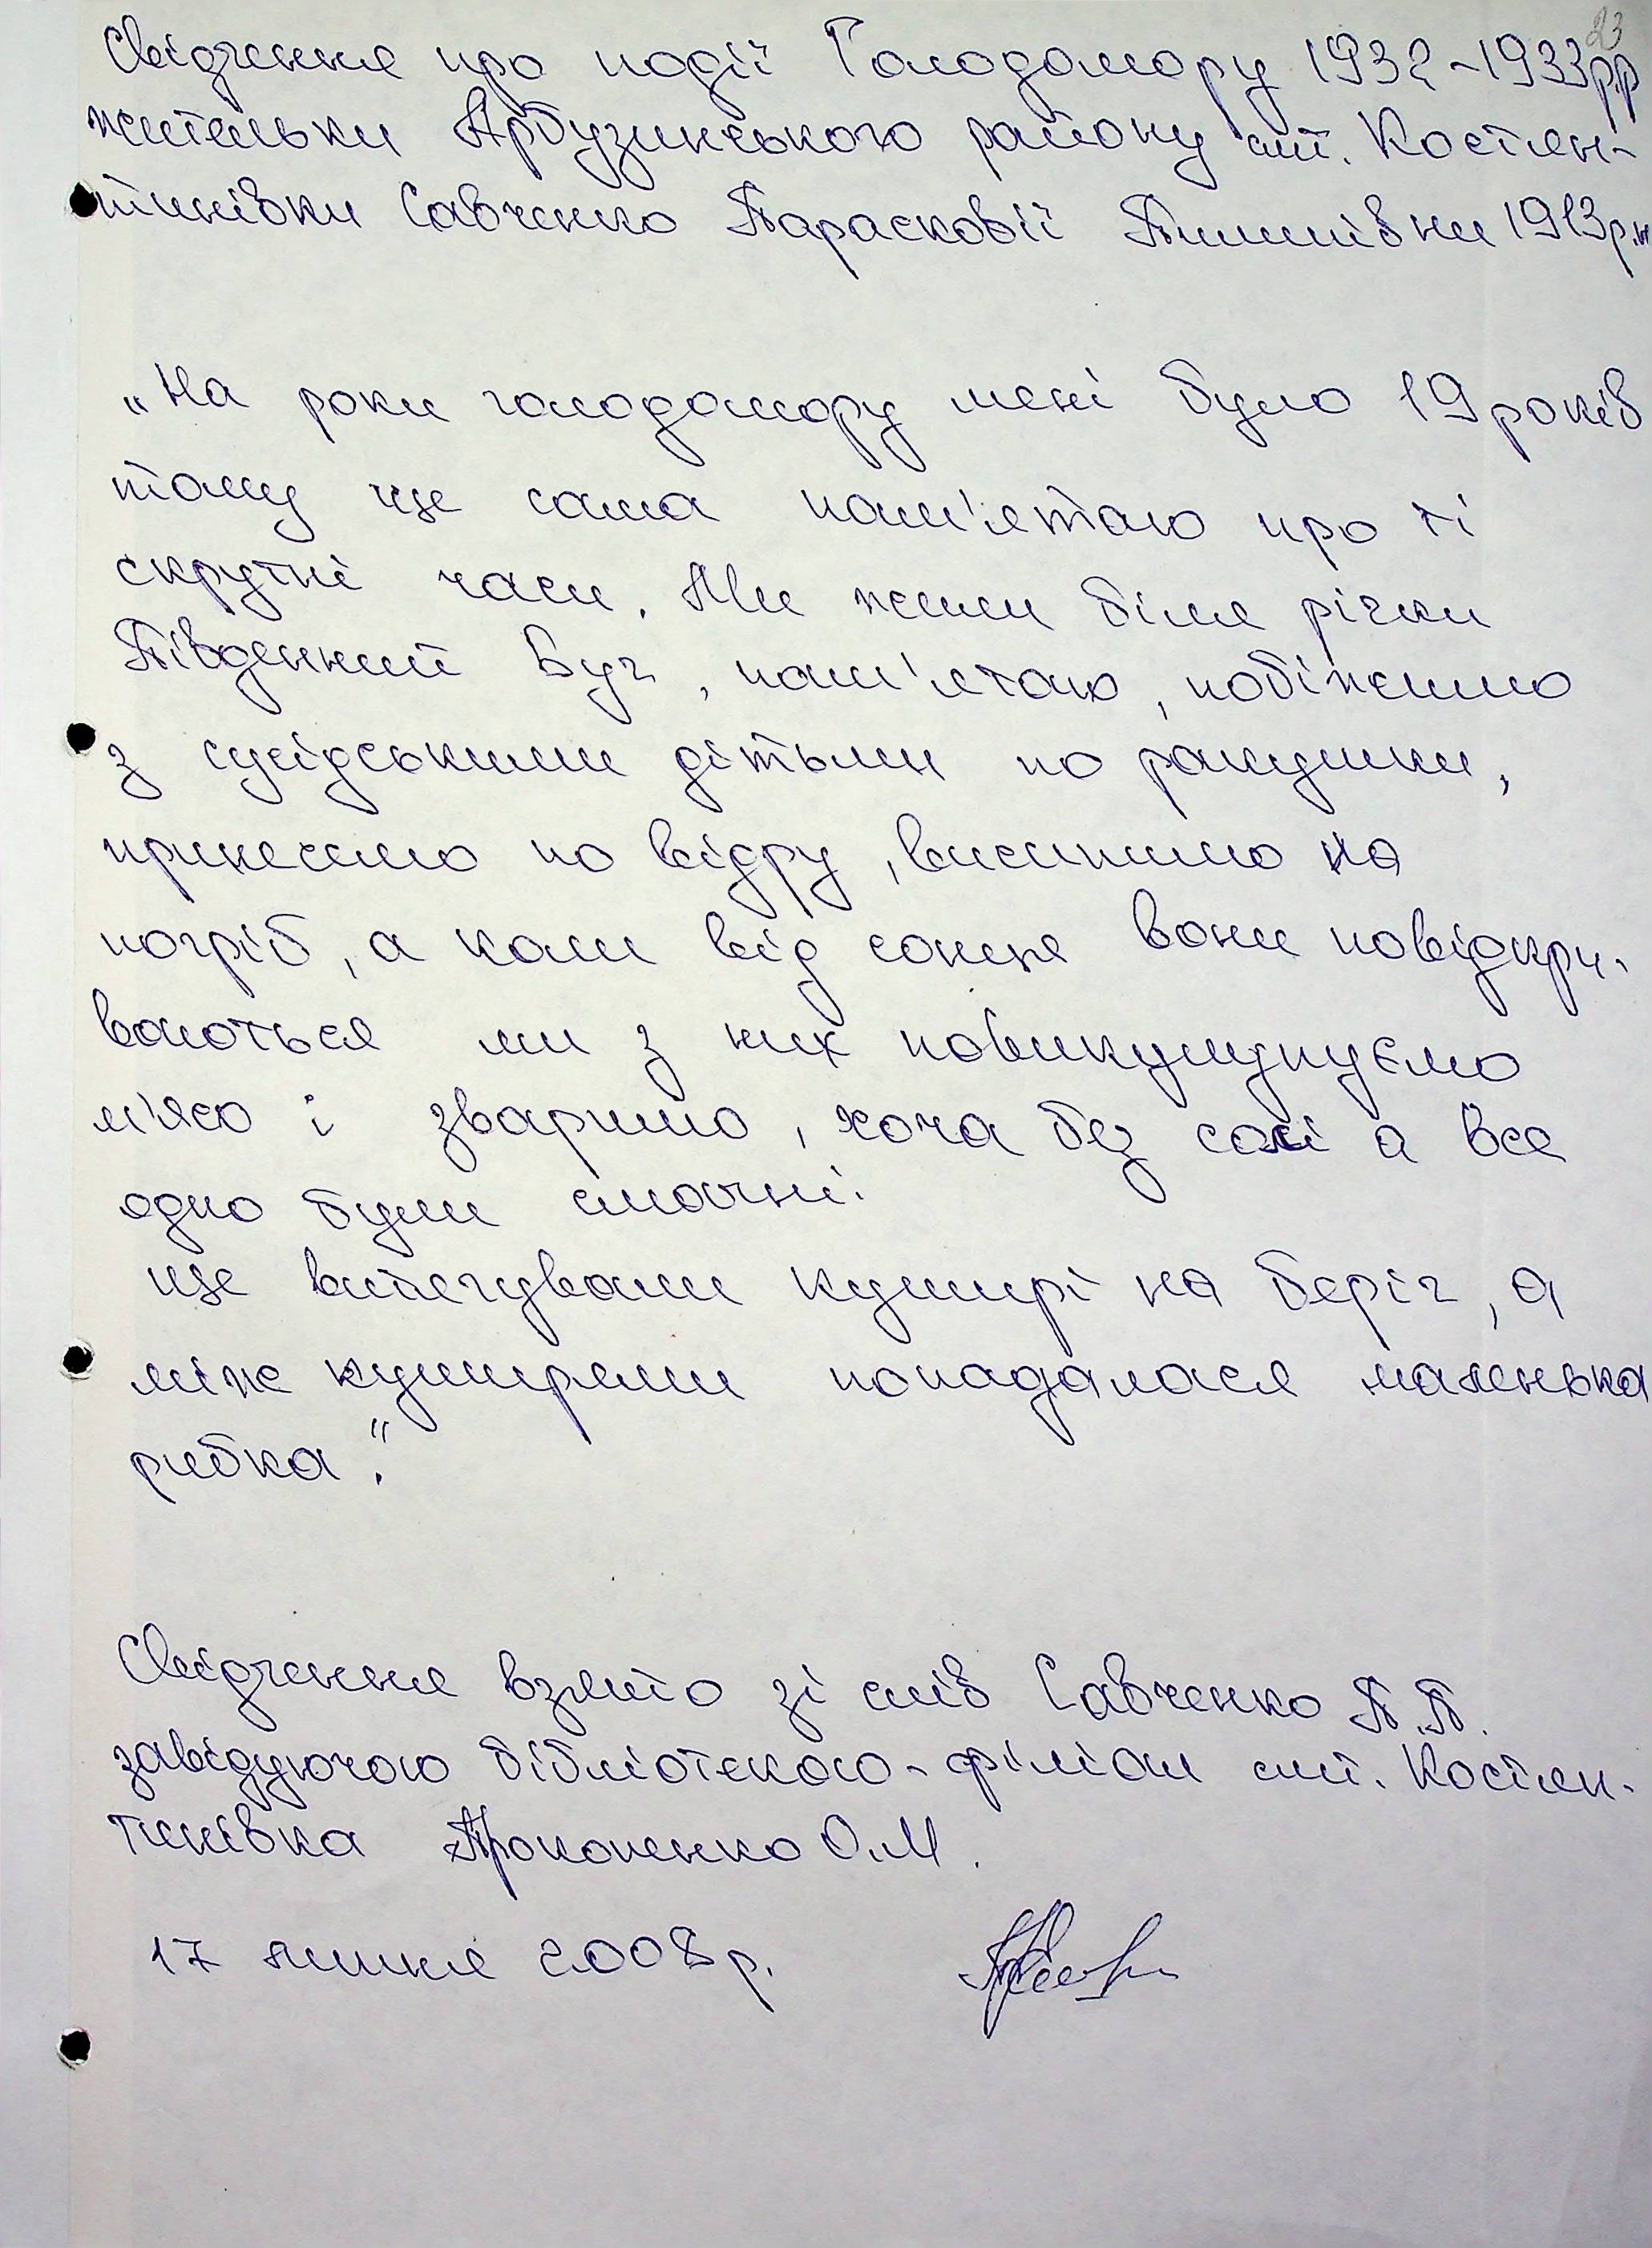 23
Свідчення про події Голодомору 1932-1933рр
жительки Арбузинського району смт. Костян-
тинівки Савченко Парасковії Пилипівни 1913р.н
„На роки голодомору мені було 19 років
тому ще сама пам'ятаю про ті
скрутні часи. Ми жили біля річки
Південний Буг, пам'ятаю, побіжимо
з сусідськими дітьми по ракушки,
принесемо по відру, висипимо на
погріб, а коли від сонця вони повідкри-
ваються ми з них повикупнуємо
м'ясо і зваримо, хоча без солі а все
одно були смачні.
Ще витягували кушірі на беріг, а
між кушірями попадалася маленька
рибка".
Свідчення взято зі слів Савченко П.П.
завідуючою бібліотекою-філіал смт. Костян-
тинівка Прокопенко О.М.
17 липня 2008р.